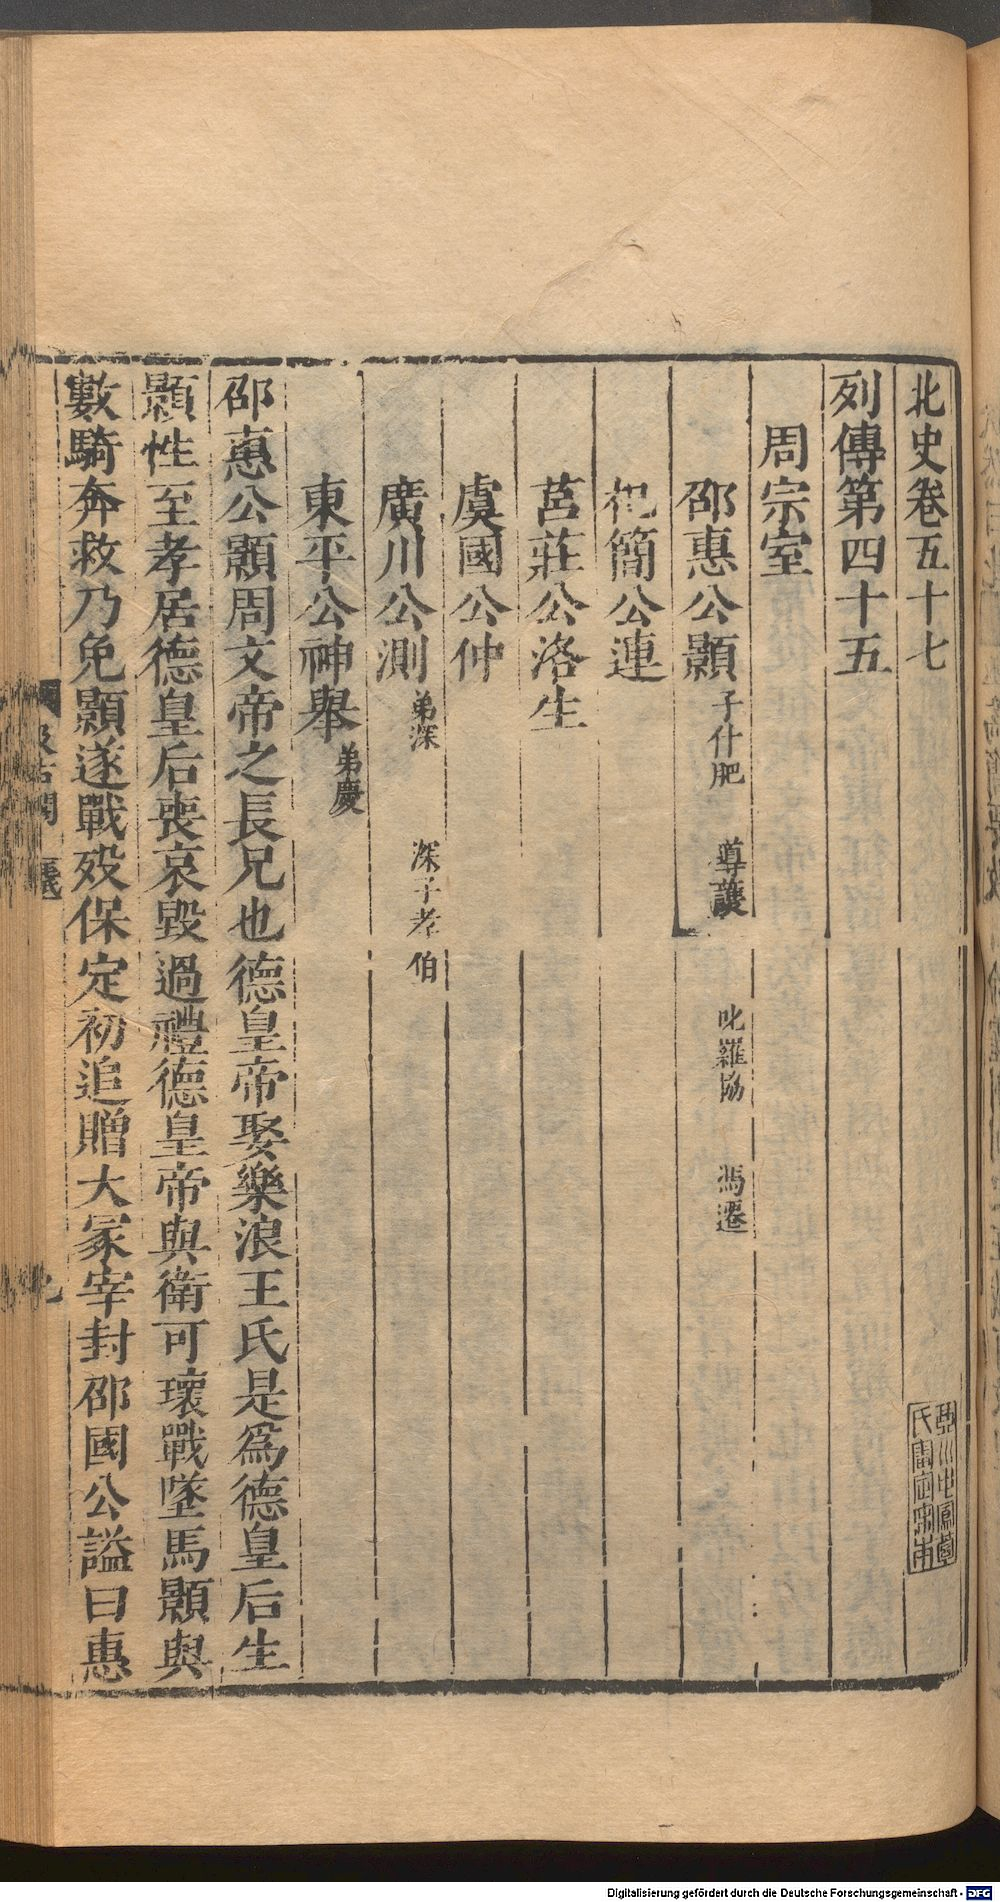 北史卷五十七
列傳第四十五
周宗室
邵惠公顥 子什肥 導 護 叱羅協 馮遷
杞簡公連
莒莊公洛生
虞國公仲
廣川公測 弟深 深子孝伯
東平公神舉 弟慶
邵惠公顥周文帝之長兄也德皇帝娶樂浪王氏是爲德皇后生
顥性至孝居德皇后喪哀毀過禮德皇帝與衛可瓌戰墜馬顥與
數騎奔救乃免顥遂戰歿保定初追贈大冢宰封邵國公謚曰惠
Digitalisierung gefördert durch die Deutsche Forschungsgemeinschaft - DFG